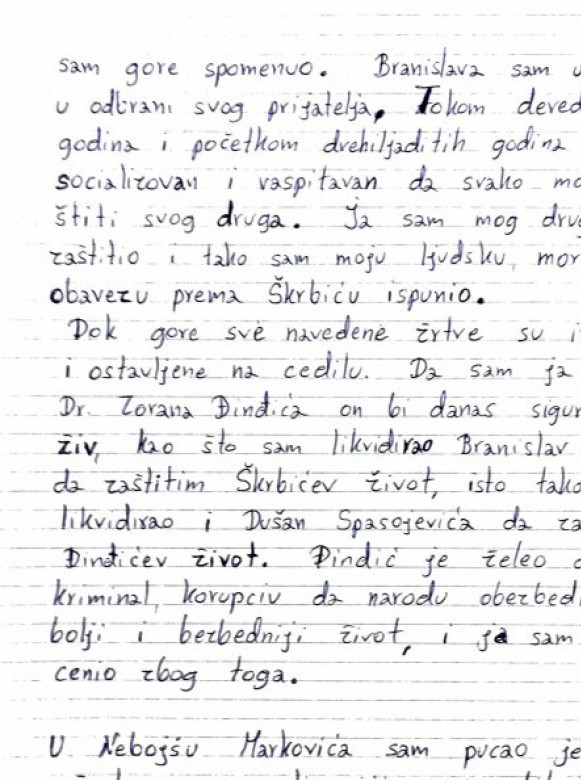 sam gore spomenuo. Branislava sam u
u odbrani svog prijatelja, Tokom deved
godina i početkom dvehiljaditih godina
socializovan i vaspitavan da svako mo
štiti svog druga. Ja sam mog drug
zaštitio i tako sam moju ljudsku, mor
obavezu prema Škrbiću ispunio.
Dok gore sve navedene žrtve su i
i ostavljene na cedilu. Da sam ja
Dr. Zorana Đinđića on bi danas sigur
živ, kao što sam likvidirao Branislav
da zaštitim Škrbićev život, isto tako
likvidirao i Dušan Spasojevića da za
Đinđićev život. Đinđić je želeo
kriminal, korupciu da narodu obezbedi
bolji i bezbedniji život, i ja sam
cenio zbog toga.
U Nebojšu Markovića sam pucao je